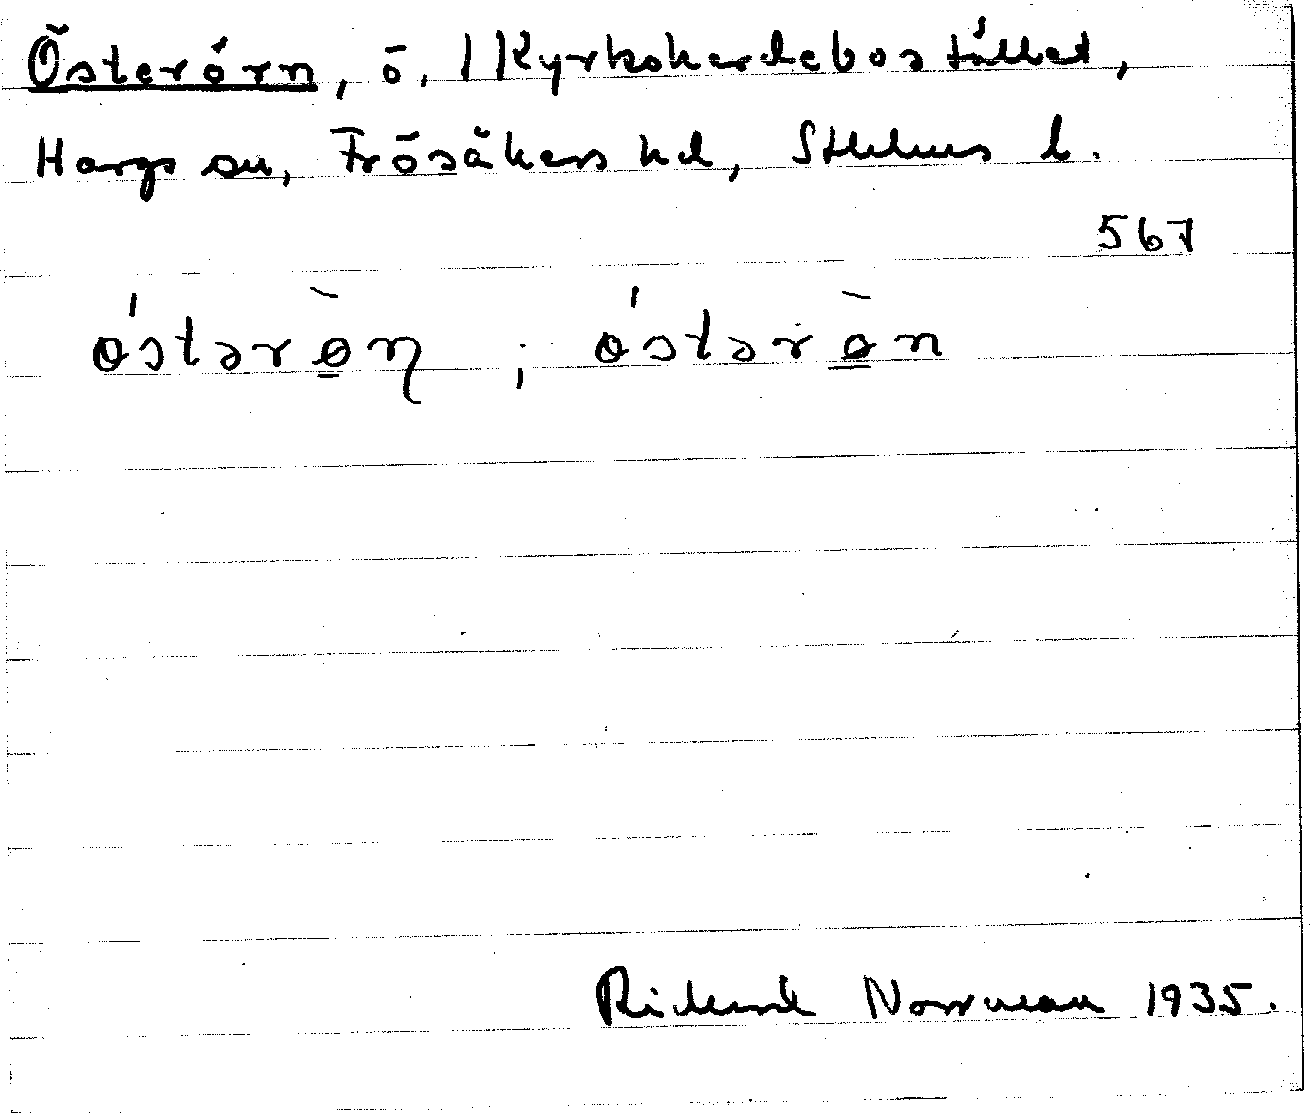 Österörn, ö, 1 Kyrkoherdebostället,
Hargs sn, Frösåkers hd, Sthlms l.
567
ǿstərø̀n ; ǿstərø̀n
Rickard Norrman 1935.